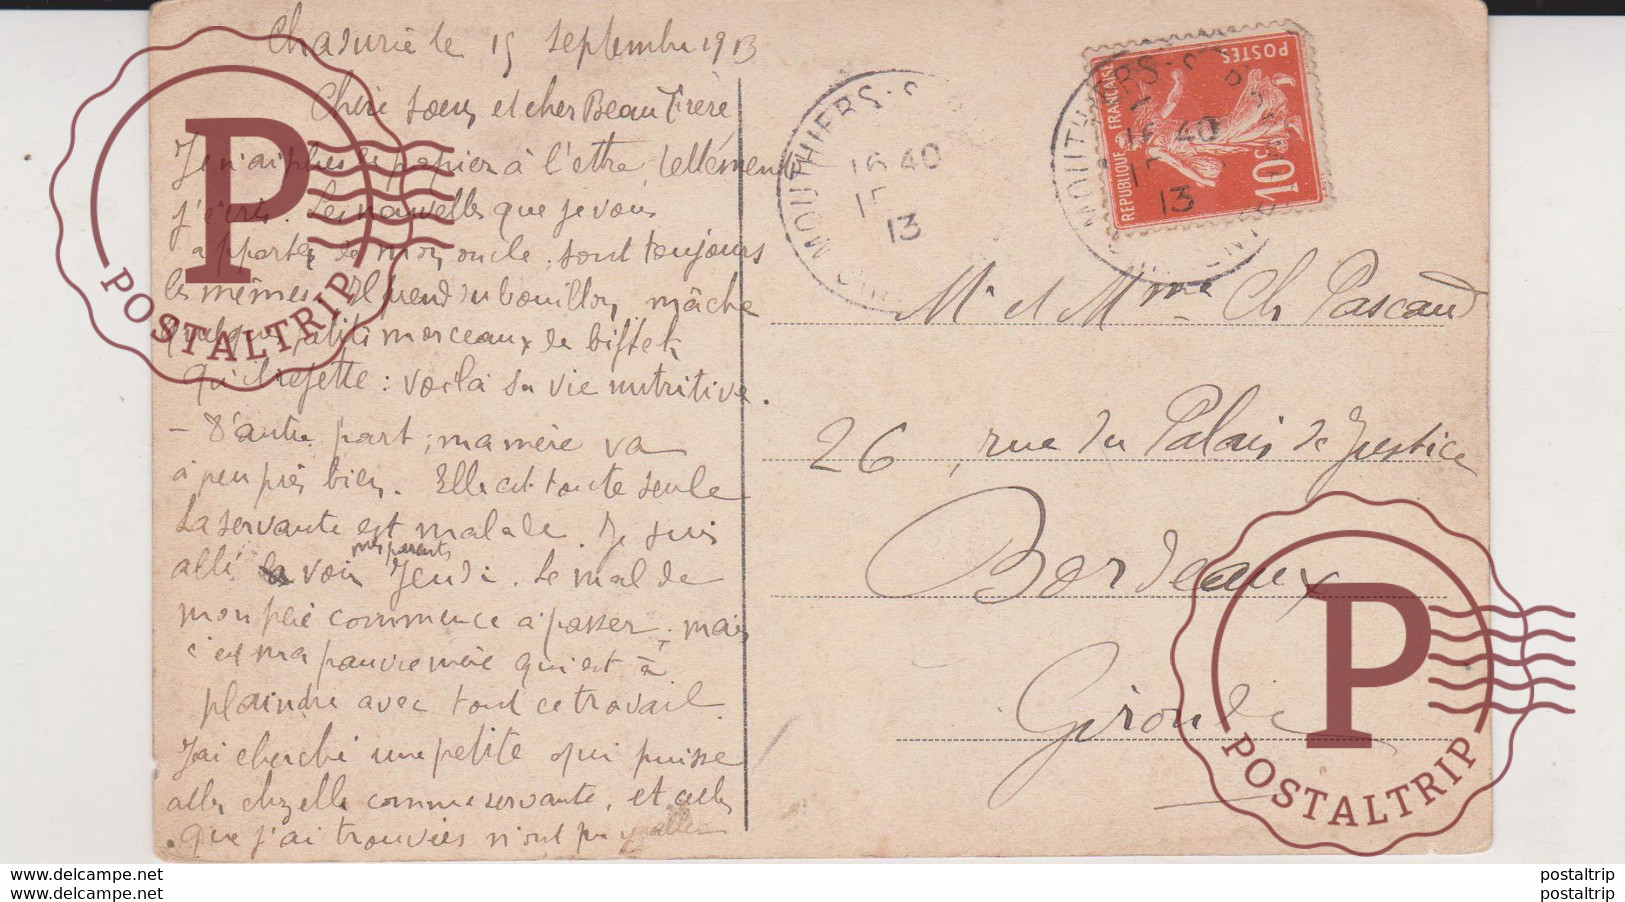 le 15 septembre 1913
Chère soeur et cher Beau Frère
Je n'ai plus de papier à lettre, tellement
j'écris. Les nouvelles que je vous
apporte de mon oncle, sont toujours
les mêmes. Il prend du bouillon, mâche
quelques petits morceaux de biftek
qu'il rejette : voilà sa vie nutritive.
- D'autre part, ma mère va
à peu près bien. Elle est toute seule
La servante est malade. Je suis
allé voir mes parents Jeudi. Le mal de
mon père commence à passer, mais
c'est ma pauvre mère qui est à
plaindre avec tout ce travail.
J'ai cherché une petite qui puisse
aller chez elle comme servante, et celles
que j'ai trouvées n'ont pu y aller
MOUTHIERS-S
16 40
13
MOUTHIERS-S
16 40
13
REPUBLIQUE FRANÇAISE
POSTES
10c
Mr et Mme Ch Pascaud
26, rue du Palais de Justice
Bordeaux
Gironde
P
POSTALTRIP
P
POSTALTRIP
www.delcampe.net
www.delcampe.net
postaltrip
postaltrip